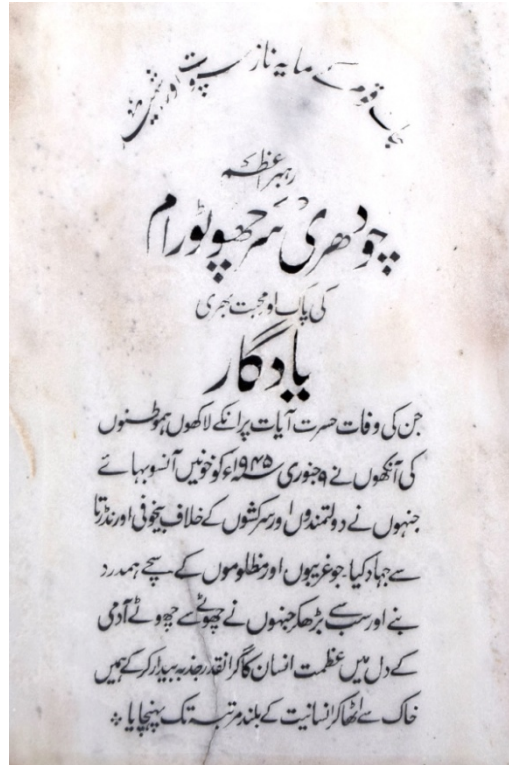 جاٹ قوم کے مایہ ناز سپوت اور
رہبر اعظم
چودھری سر چھوٹو رام
کی پاک اور محبت بھری
یادگار
جن کی وفات حسرت آیات پر انکے لاکھوں ہموطنوں
کی آنکھوں نے ۹ جنوری ۱۹۴۵ء کو خونیں آنسو بہائے
جنہوں نے دولتمندوں اور سرکشوں کے خلاف بیخوفی اور نڈرتا
سے جہاد کیا۔ جو غریبوں اور مظلوموں کے سچے ہمدرد
بنے اور سب سے بڑھکر جنہوں نے چھوٹے سے چھوٹے آدمی
کے دل میں عظمت انسان کا گرانقدر جذبہ بیدار کر کے ہمیں
خاک سے اٹھا کر انسانیت کے بلند مرتبہ تک پہنچایا